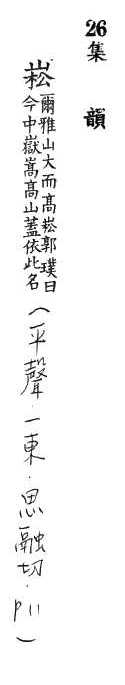 26
集韻
崧
爾雅山大而高崧郭璞曰
今中嶽嵩高山蓋依此名
(平聲.一東.思融切.P11)